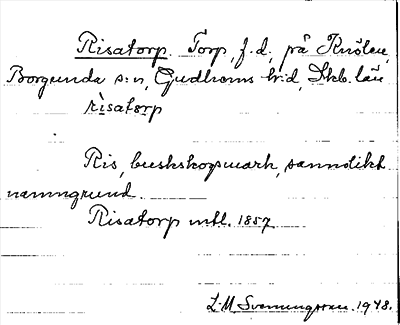 Risatorp. Torp, f.d., på Knölen,
Borgunda s:n, Gudhems h:d, Skb. län
risatorp
Ris, buskskogsmark, sannolikt
namngrund.
Risatorp mtl. 1857
L.M. Svenungsson. 1948.